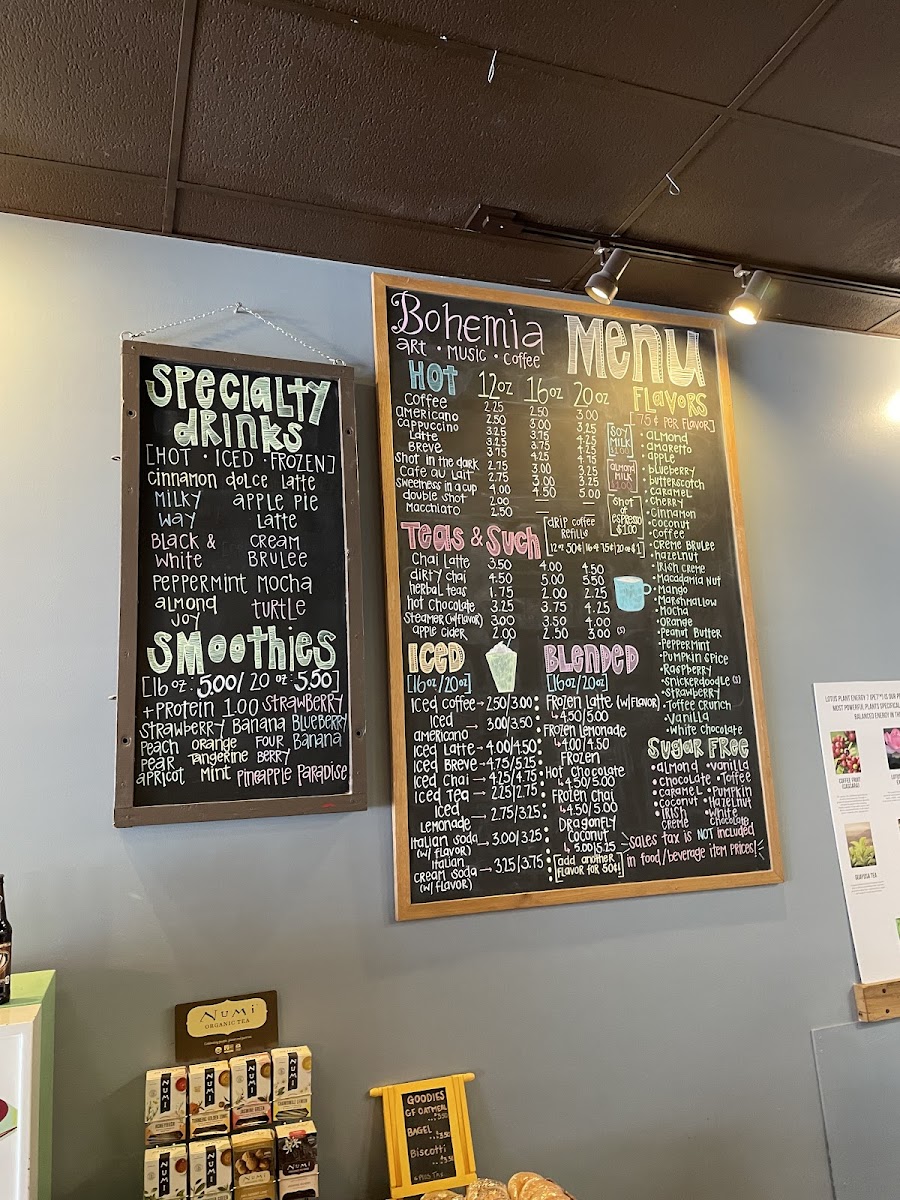 Specialty
drinks
[HOT · ICED · FROZEN]
Cinnamon dolce latte
Milky Way
apple pie Latte
Black & White
Cream Brulee
Peppermint Mocha
almond Joy
Turtle
Smoothies
[16oz: 5.00/ 20oz: 5.50]
+Protein 1.00 Strawberry
Strawberry Banana Blueberry
Peach Orange Four Banana
Pear Tangerine Berry
apricot Mint Pineapple Paradise
Bohemia
art · music · coffee
Menu
Hot 12oz 16oz 20oz
Coffee 2.25 2.50 3.00
americano 2.50 3.00 3.50
cappuccino 3.25 3.75 4.25
Latte 3.25 3.75 4.25
Breve 3.75 4.25 4.75
Shot in the dark 2.75 3.00 3.25
Cafe au Lait 2.75 3.00 3.25
Sweetness in a cup 4.00 4.50 5.00
double shot 2.00 — —
Macchiato 2.50 — —
Soy Milk $1.00
almond Milk $1.00
Shot of espresso $1.00
[drip coffee Refills
12oz 50¢|16oz 75¢|20oz $1]
Teas & Such
Chai Latte 3.50 4.00 4.50
dirty chai 4.50 5.00 5.50
herbal teas 1.75 2.00 2.25
hot chocolate 3.25 3.75 4.25
Steamer (w/flavor) 3.00 3.50 4.00
apple cider 2.00 2.50 3.00 (s)
Iced
[16oz/20oz]
Iced coffee → 2.50/3.00
Iced americano → 3.00/3.50
Iced Latte → 4.00/4.50
Iced Breve → 4.75/5.25
Iced Chai → 4.25/4.75
Iced Tea → 2.25/2.75
Iced Lemonade → 2.75/3.25
Italian Soda (w/ flavor) → 3.00/3.25
Italian cream soda (w/ flavor) → 3.25/3.75
Blended
[16oz/20oz]
Frozen Latte (w/flavor)
↳ 4.50/5.00
Frozen Lemonade
↳ 4.00/4.50
Frozen Hot Chocolate
↳ 4.50/5.00
Frozen Chai
↳ 4.50/5.00
Dragonfly Coconut
↳ 5.00/5.25
[add another flavor for 50¢!]
Flavors
[75¢ per flavor]
· almond
· amaretto
· apple
· blueberry
· butterscotch
· caramel
· cherry
· Cinnamon
· Coconut
· Coffee
· Creme Brulee
· hazelnut
· Irish creme
· Macadamia nut
· Mango
· Marshmallow
· Mocha
· Orange
· Peanut Butter
· Peppermint
· Pumpkin Spice
· Raspberry
· Snickerdoodle (s)
· Strawberry
· Toffee Crunch
· Vanilla
· White Chocolate
Sugar Free
· almond · vanilla
· chocolate · Toffee
· caramel · Pumpkin
· coconut · Hazelnut
· Irish creme · White chocolate
sales tax is NOT included
in food/beverage item prices!
LOTUS PLANT ENERGY
COFFEE FRUIT
(CASCARA)
GUAYUSA TEA
NUMI
ORGANIC TEA
NUMI
NUMI
NUMI
NUMI
NUMI
NUMI
NUMI
GOODIES
GF OATMEAL
3.50
BAGEL
3.50
BISCOTTI